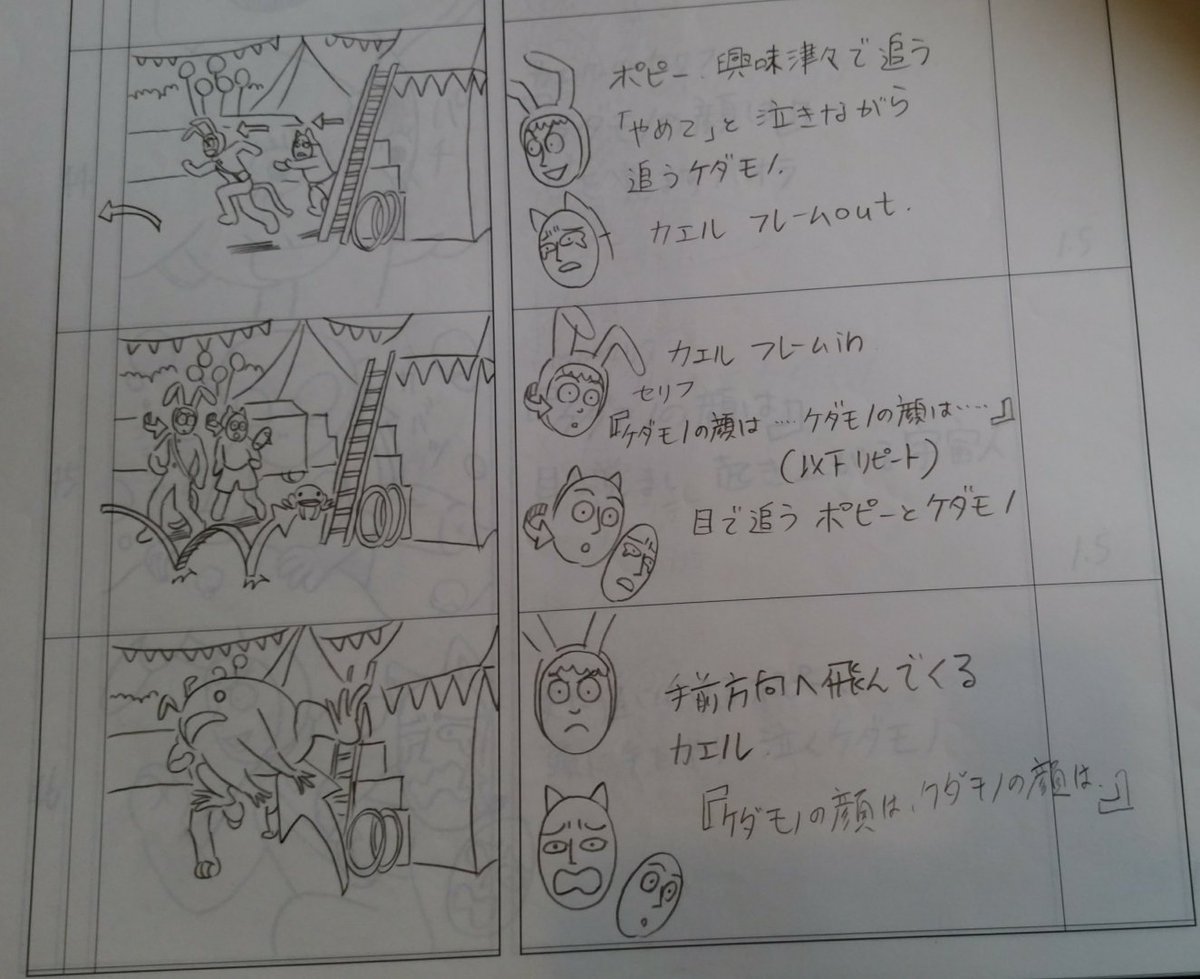 ポピー、興味津々で追う
「やめて」と泣きながら
追うケダモノ.
カエル フレームout.
1.5
カエル フレームin
セリフ
『ケダモノの顔は‥‥ケダモノの顔は‥‥』
(以下リピート)
目で追う ポピーとケダモノ
1.5
手前方向へ飛んでくる
カエル
『ケダモノの顔は、ケダモノの顔は‥』